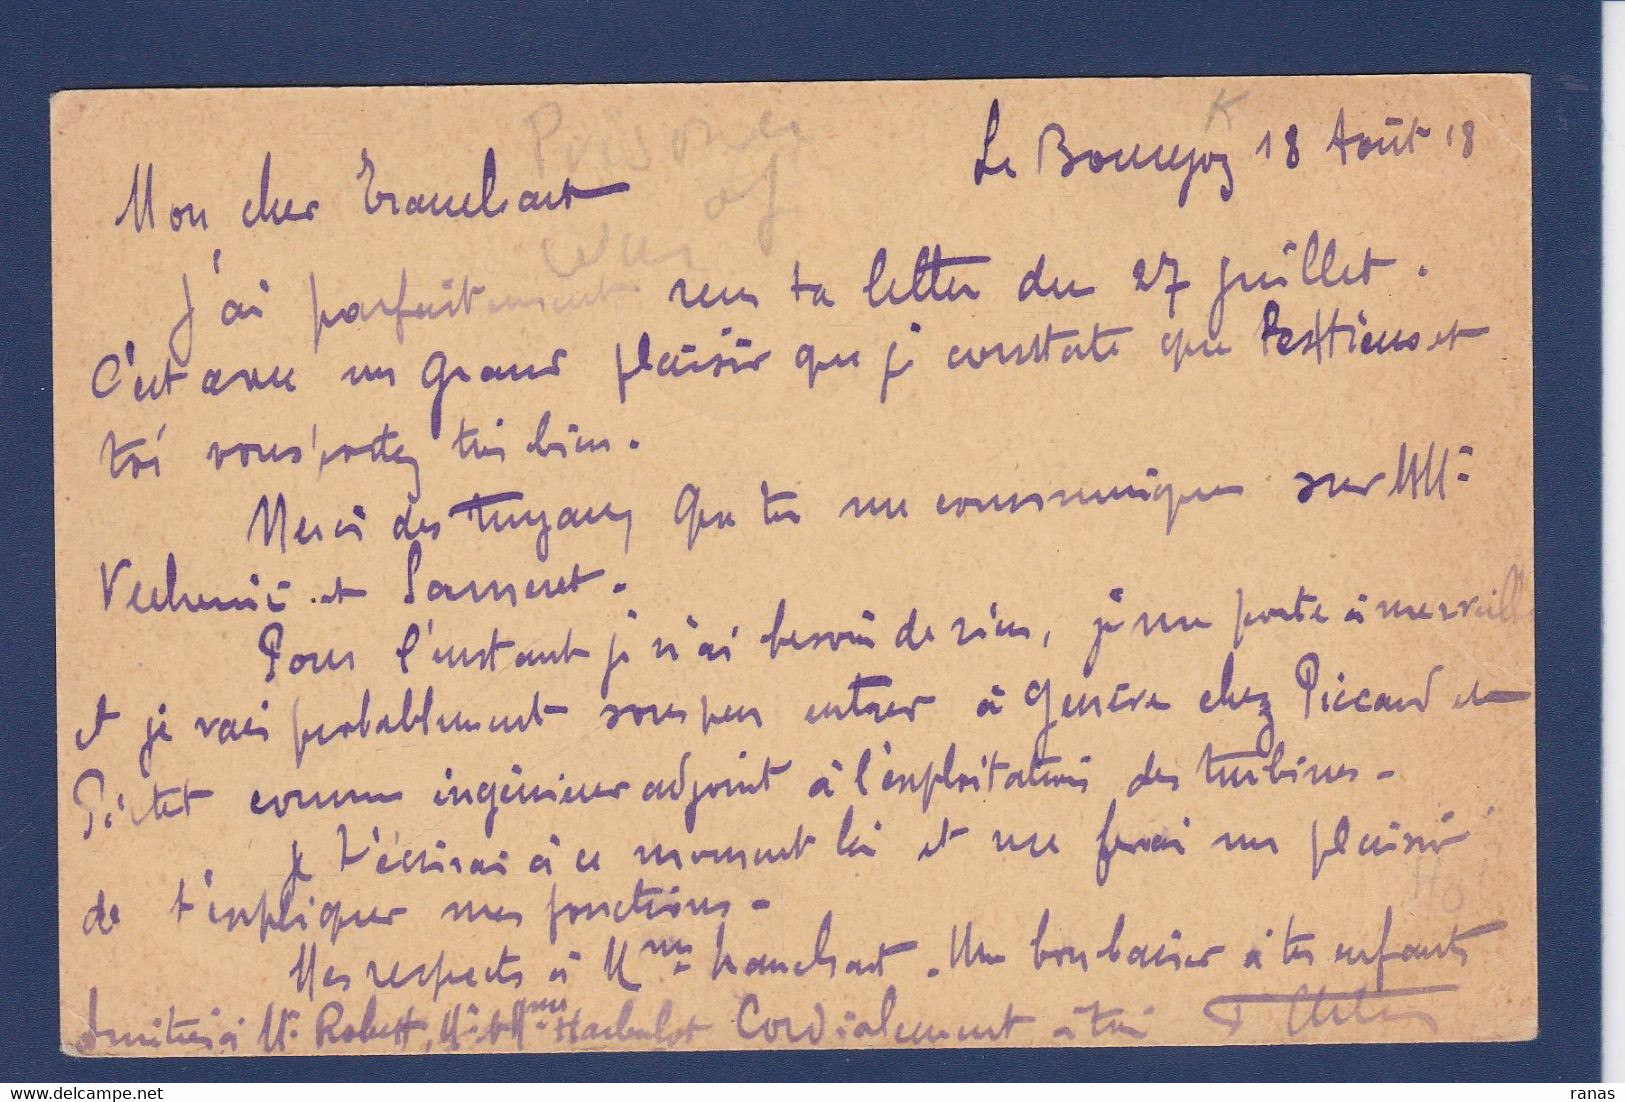 Prisoner
of
War
K
Le Bouveyoz 18 Août 18
Mon cher Tranchant
J'ai parfaitement reçu ta lettre du 27 juillet.
C'est avec un grand plaisir que je constate que et
toi vous portez très bien.
Merci des tuyaux que tu me communiques sur MM:
et
Pour l'instant je n'ai besoin de rien, je me porte à merveille
et je vais probablement sous peu entrer à Genève chez Piccard et
Pictet comme ingénieur adjoint à l'exploitation des turbines.
Je t'écrirai à ce moment là et me ferai un plaisir
de t'expliquer mes fonctions.
Mes respects à Mme Tranchant. Un bon baiser à tes enfants
Amitiés à Mr Robert, Mr & Mme Cordialement à toi
ranas